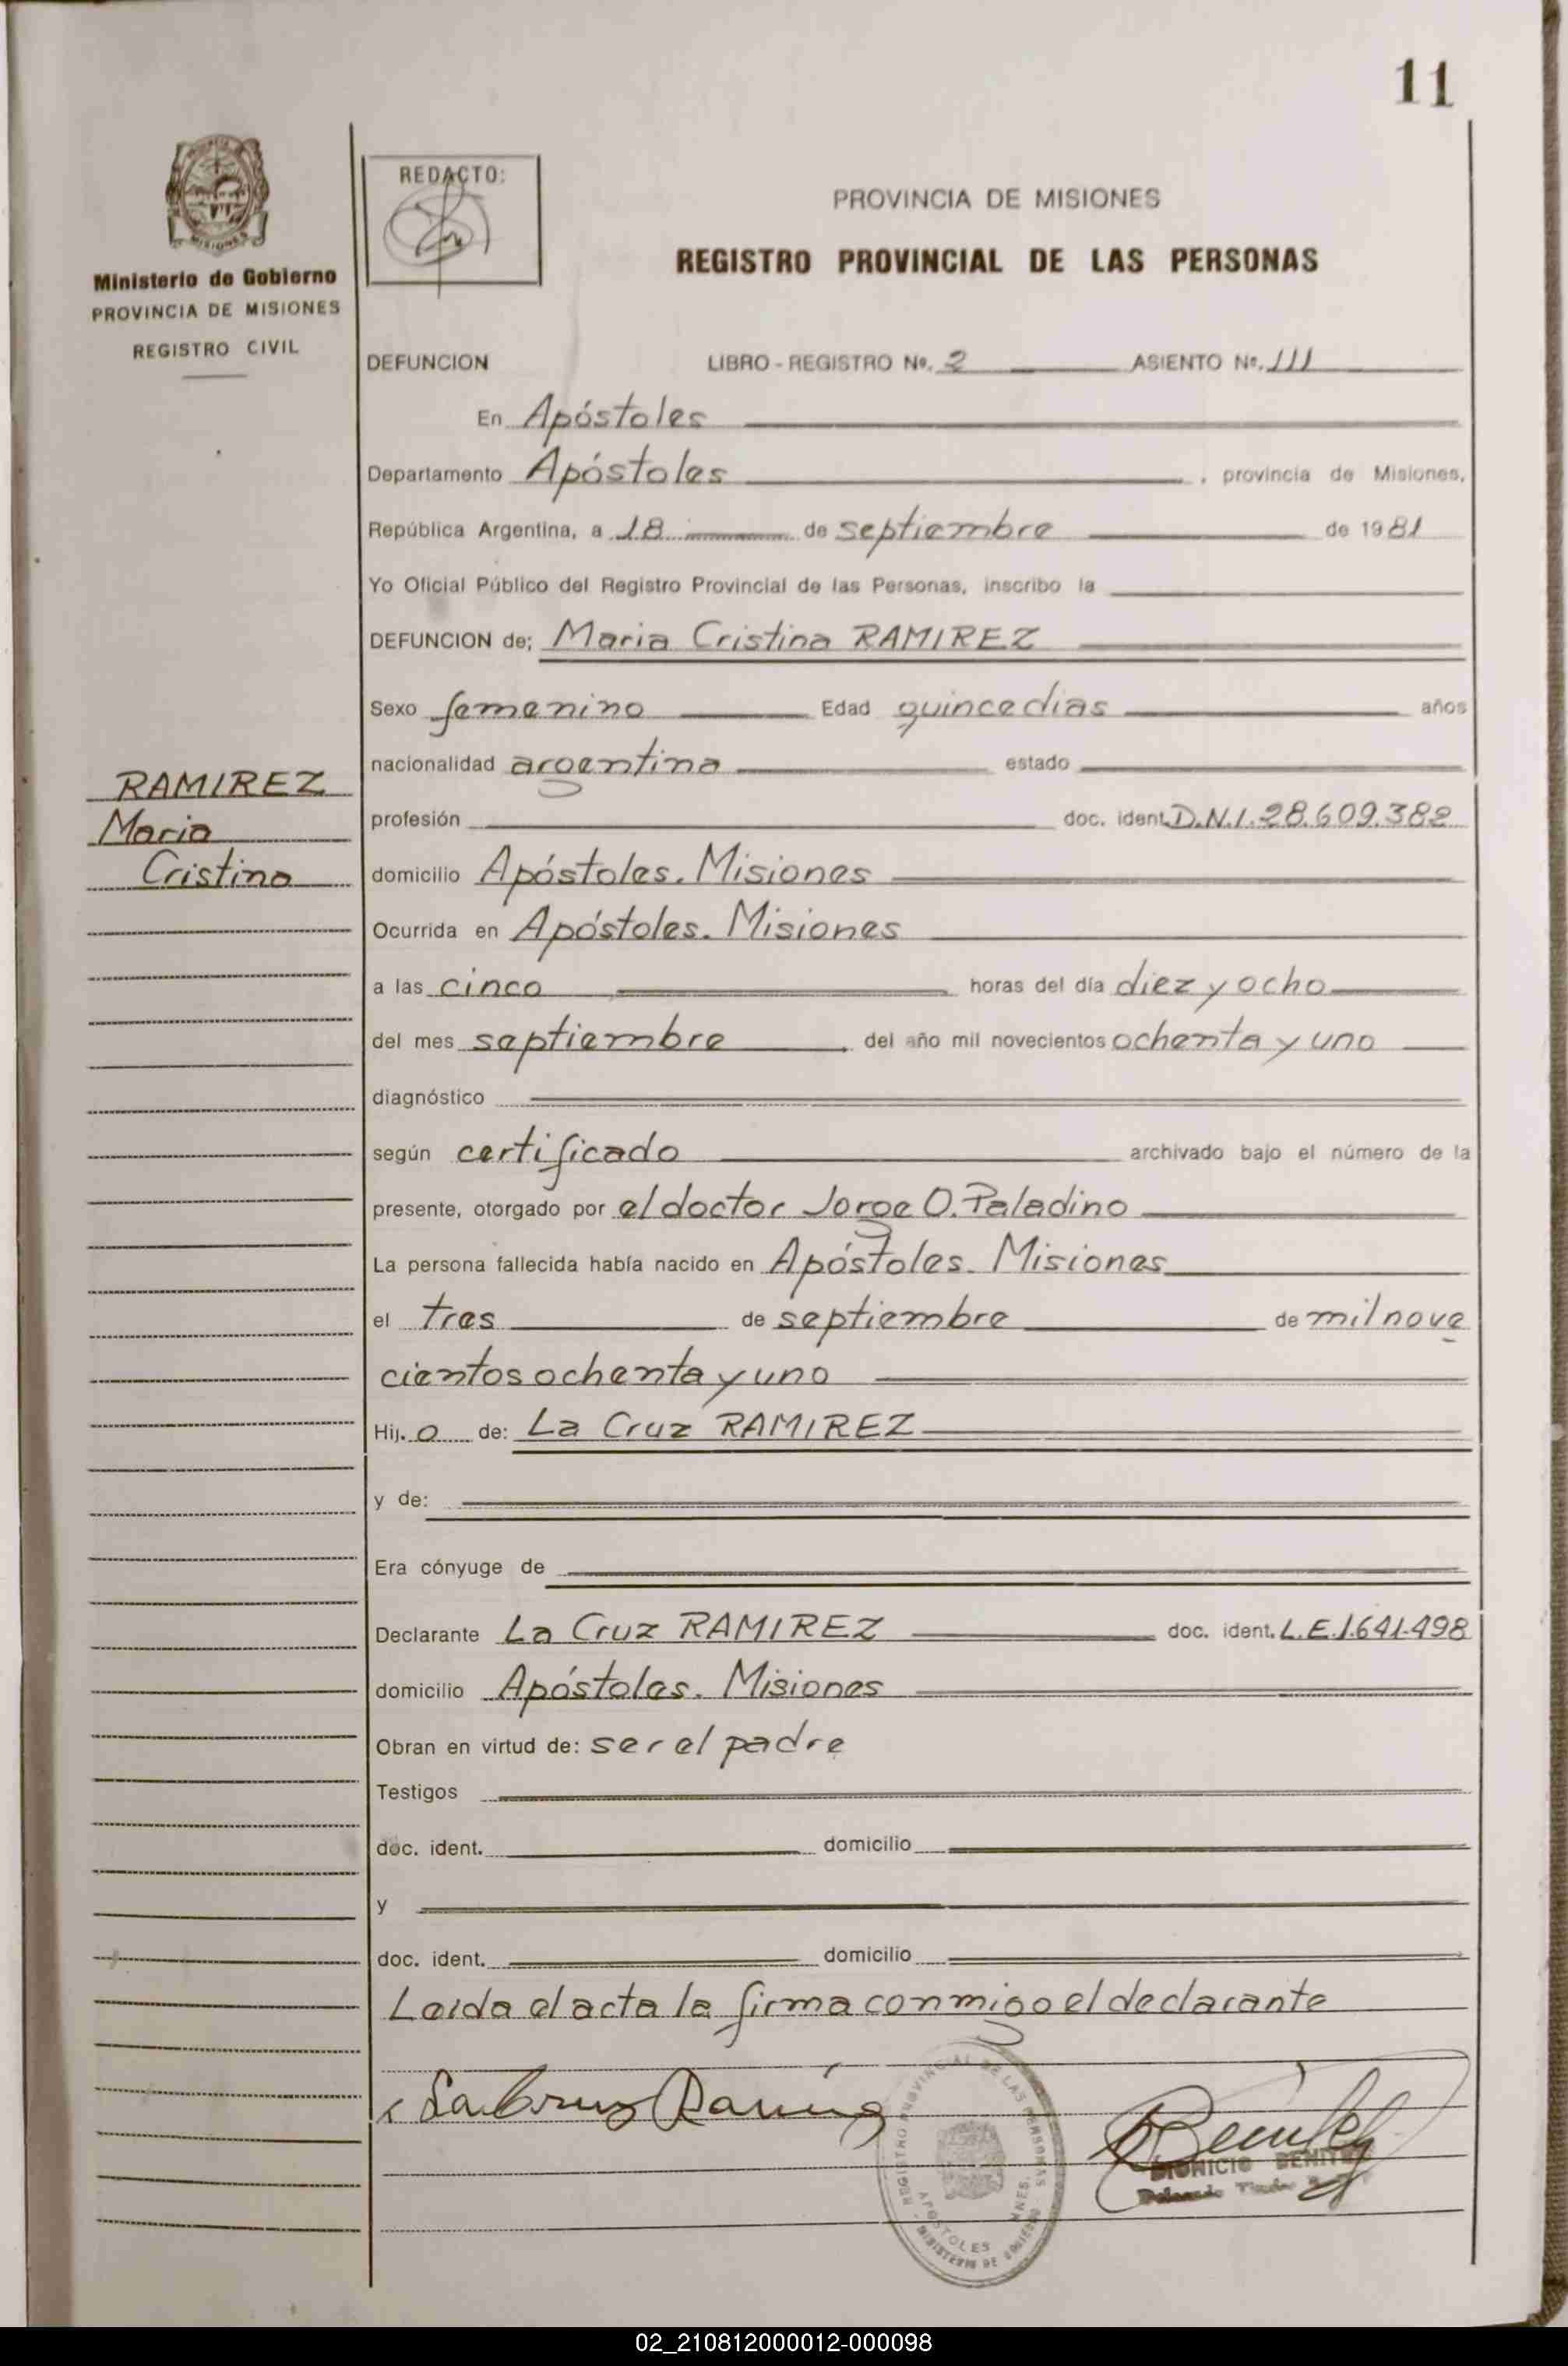 11
MISIONES
Ministerio de Gobierno
PROVINCIA DE MISIONES
REGISTRO CIVIL
REDACTO:
PROVINCIA DE MISIONES
REGISTRO PROVINCIAL DE LAS PERSONAS
DEFUNCION LIBRO - REGISTRO Nº. 2 ASIENTO Nº. 111
En Apóstoles
Departamento Apóstoles , provincia de Misiones,
República Argentina, a 18 de septiembre de 1981
Yo Oficial Público del Registro Provincial de las Personas, inscribo la
DEFUNCION de; Maria Cristina RAMIREZ
Sexo femenino Edad quince dias años
nacionalidad argentina estado
RAMIREZ
Maria
Cristina
profesión doc. ident. D.N.I. 28.609.382
domicilio Apóstoles. Misiones
Ocurrida en Apóstoles. Misiones
a las cinco horas del día diez y ocho
del mes septiembre del año mil novecientos ochenta y uno
diagnóstico
según certificado archivado bajo el número de la
presente, otorgado por el doctor Jorge O. Paladino
La persona fallecida había nacido en Apóstoles. Misiones
el tres de septiembre de mil nove
cientos ochenta y uno
Hij. a de: La Cruz RAMIREZ
y de:
Era cónyuge de
Declarante La Cruz RAMIREZ doc. ident. L.E.1.641.498
domicilio Apóstoles. Misiones
Obran en virtud de: ser el padre
Testigos
doc. ident. domicilio
y
doc. ident. domicilio
Leida el acta la firma conmigo el declarante
La Cruz Ramirez
REGISTRO PROVINCIAL DE LAS PERSONAS
APOSTOLES MNES.
MINISTERIO DE GOBIERNO
DIONICIO BENITEZ
02_210812000012-000098